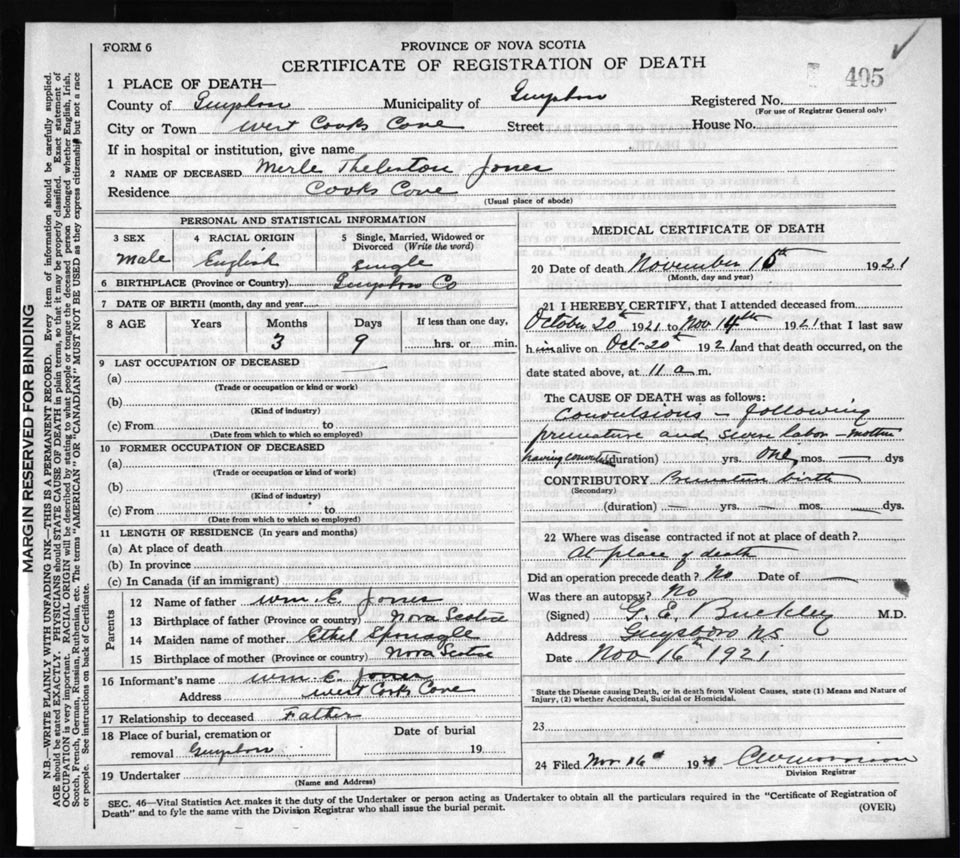 FORM 6
PROVINCE OF NOVA SCOTIA
CERTIFICATE OF REGISTRATION OF DEATH
495
1 PLACE OF DEATH—
County of Guysboro Municipality of Guysboro Registered No.
(For use of Registrar General only)
City or Town West Cooks Cove Street House No.
If in hospital or institution, give name
2 NAME OF DECEASED Merle Jones
Residence Cooks Cove
(Usual place of abode)
PERSONAL AND STATISTICAL INFORMATION
3 SEX 4 RACIAL ORIGIN 5 Single, Married, Widowed or Divorced (Write the word)
male English Single
6 BIRTHPLACE (Province or Country) Guysboro Co
7 DATE OF BIRTH (month, day and year)
8 AGE Years Months Days If less than one day,
3 9 hrs. or min.
9 LAST OCCUPATION OF DECEASED
(a)
(Trade or occupation or kind or work)
(b)
(Kind of industry)
(c) From to
(Date from which to which so employed)
10 FORMER OCCUPATION OF DECEASED
(a)
(Trade or occupation or kind of work)
(b)
(Kind of industry)
(c) From to
(Date from which to which so employed)
11 LENGTH OF RESIDENCE (In years and months)
(a) At place of death
(b) In province
(c) In Canada (if an immigrant)
Parents
12 Name of father Wm. E. Jones
13 Birthplace of father (Province or country) Nova Scotia
14 Maiden name of mother Ethel Sponagle
15 Birthplace of mother (Province or country) Nova Scotia
16 Informant's name Wm. E. Jones
Address West Cooks Cove
17 Relationship to deceased Father
18 Place of burial, cremation or Date of burial
removal Guysboro 19
19 Undertaker
(Name and Address)
MEDICAL CERTIFICATE OF DEATH
20 Date of death November 15th 1921
(Month, day and year)
21 I HEREBY CERTIFY, that I attended deceased from
October 20th 1921 to Nov 14th 1921 that I last saw
him alive on Oct 20th 1921 and that death occurred, on the
date stated above, at 11 a m.
The CAUSE OF DEATH was as follows:
Convulsions – following
premature and severe labor – mother
having (duration) yrs. one mos. — dys
CONTRIBUTORY Premature birth
(Secondary)
(duration) — yrs. — mos. — dys.
22 Where was disease contracted if not at place of death?
At place of death
Did an operation precede death? No Date of —
Was there an autopsy? No
(Signed) G. E. Buckley M.D.
Address Guysboro NS
Date Nov 16th 1921
*State the Disease causing Death, or in death from Violent Causes, state (1) Means and Nature of
Injury, (2) whether Accidental, Suicidal or Homicidal.
23
24 Filed Nov 16th 19
Division Registrar
SEC. 46—Vital Statistics Act makes it the duty of the Undertaker or person acting as Undertaker to obtain all the particulars required in the "Certificate of Registration of
Death" and to fyle the same with the Division Registrar who shall issue the burial permit.
(OVER)
MARGIN RESERVED FOR BINDING
N.B.—WRITE PLAINLY WITH UNFADING INK—THIS IS A PERMANENT RECORD. Every item of information should be carefully supplied.
AGE should be stated EXACTLY. PHYSICIANS should STATE CAUSE OF DEATH in plain terms, so that it may be properly classified. Exact statement of
OCCUPATION is very important. RACIAL ORIGIN will be described by stating to what people or tongue the deceased person belonged whether English, Irish,
Scotch, French, German, Russian, Ruthenian, etc. The terms "AMERICAN" OR "CANADIAN" MUST NOT BE USED as they express citizenship but not a race
or people. See instructions on back of Certificate.